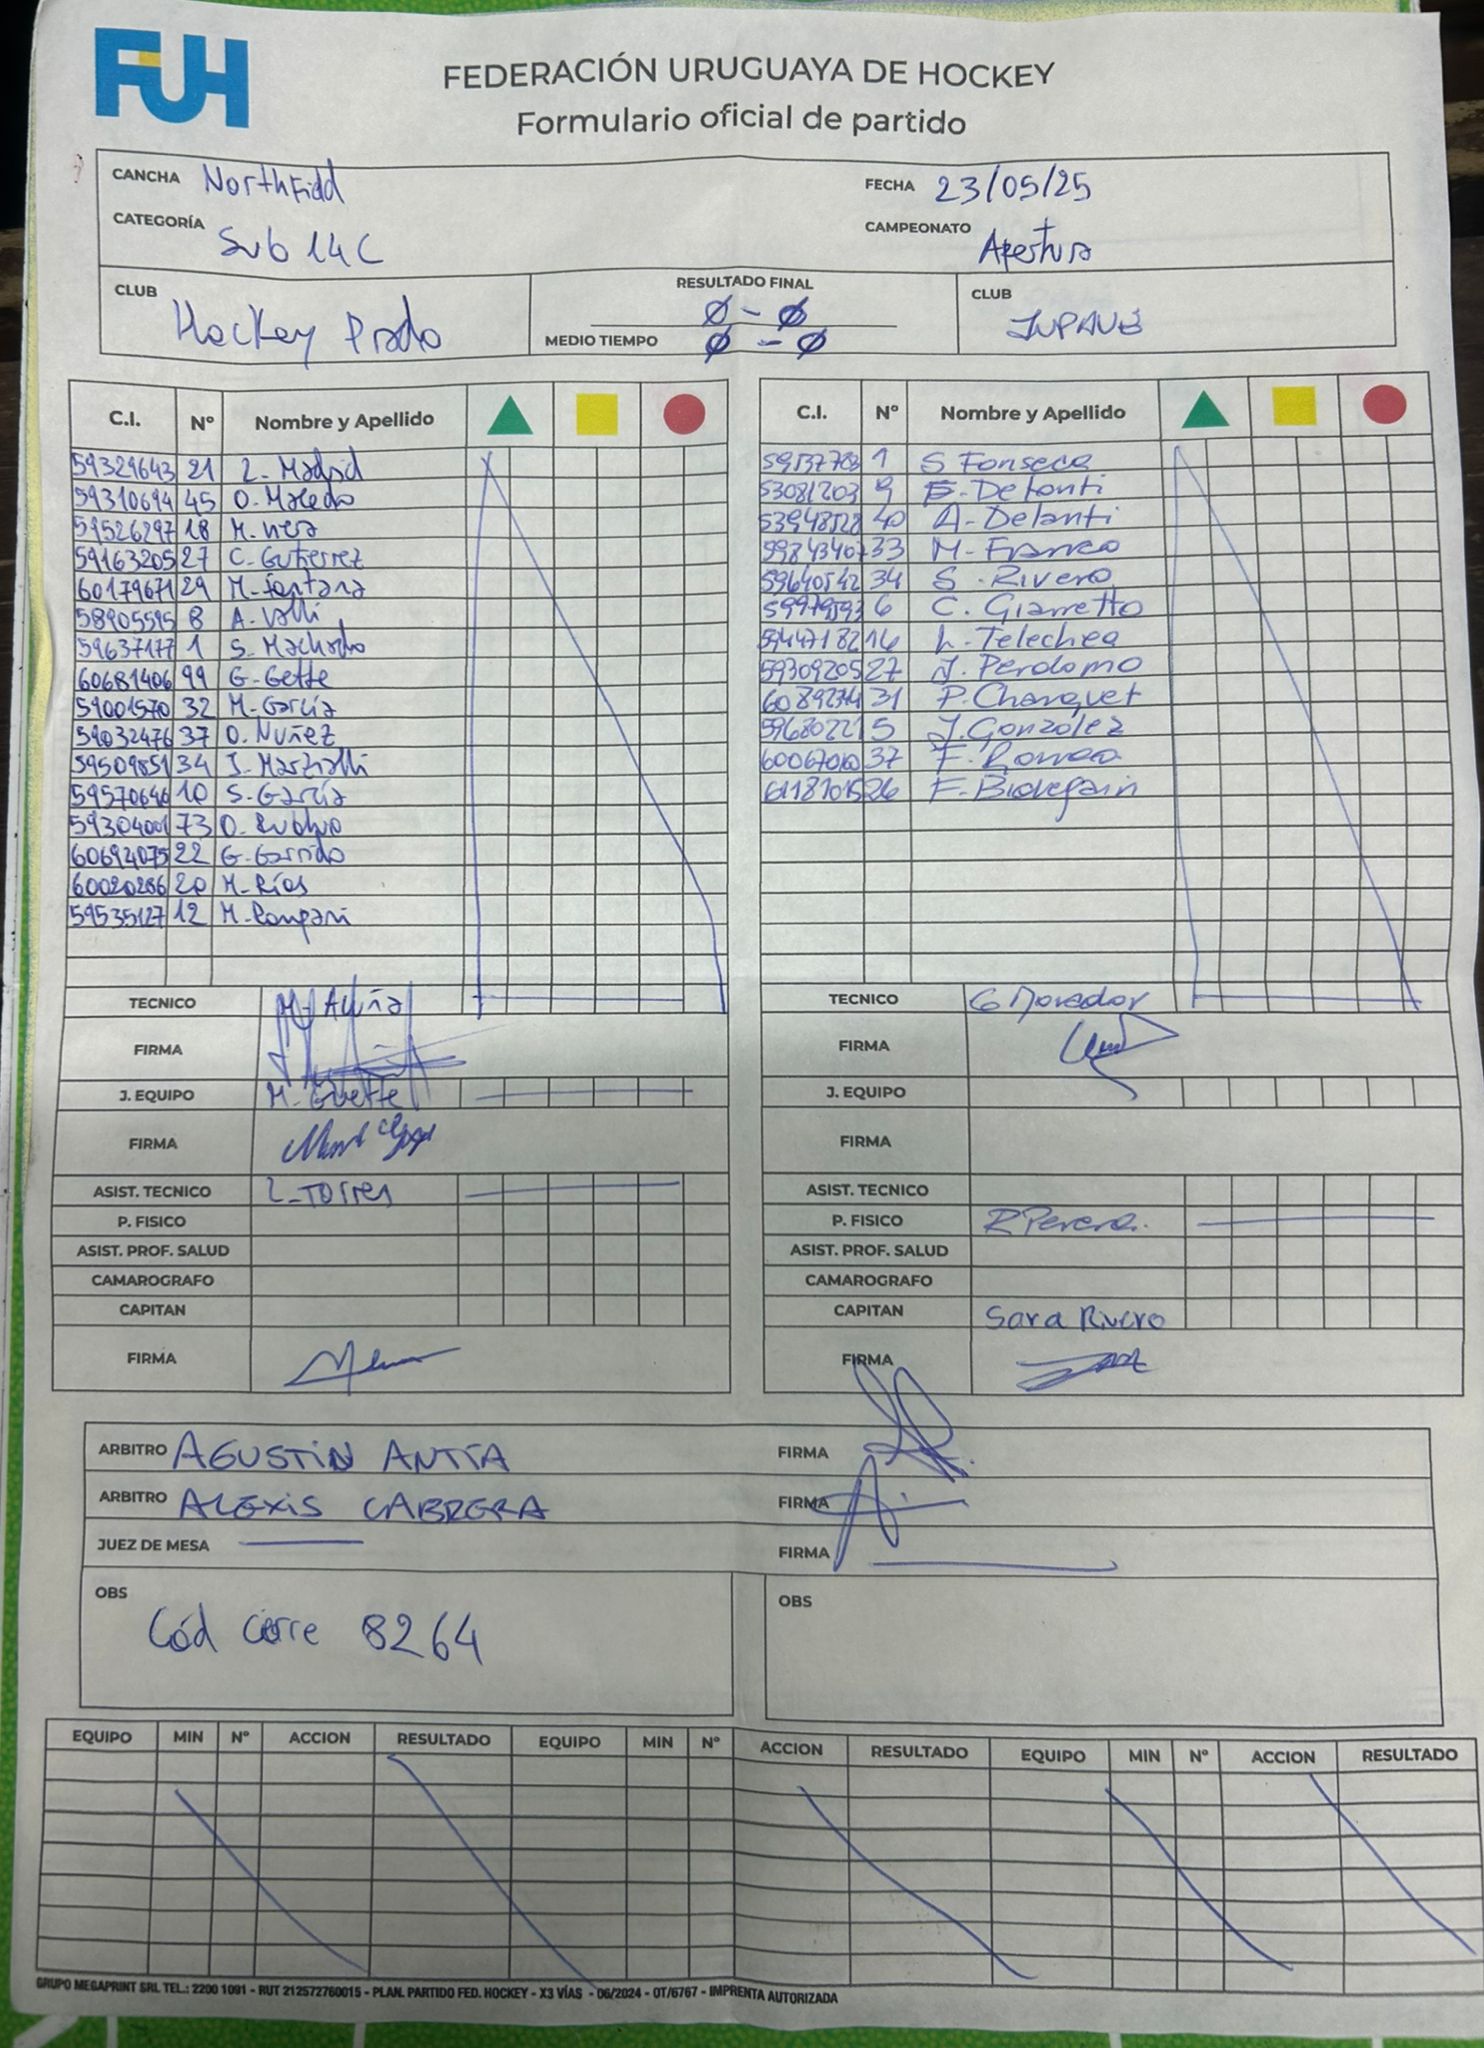 FUH
FEDERACIÓN URUGUAYA DE HOCKEY
Formulario oficial de partido
CANCHA NorthField
FECHA 23/05/25
CATEGORÍA Sub 14 C
CAMPEONATO Apertura
CLUB Hockey Prado
RESULTADO FINAL 0 - 0
MEDIO TIEMPO 0 - 0
CLUB
C.I. Nº Nombre y Apellido
59329643 21 L. Madrid
59310694 45 O. Macedo
59526297 18 M.
59163205 27 C. Gutierrez
60179671 29 M. Fontana
58905595 8 A. Valli
59637177 1 S. Machado
60681406 99 G. Gette
59001570 32 M. García
59032476 37 O. Nuñez
59509851 34 J. Marzialli
59570646 10 S. García
59304001 73 O.
60694075 22 G. Garrido
60020286 20 M. Ríos
59535127 12 M.
TECNICO M. Acuña
FIRMA
J. EQUIPO M. Guette
FIRMA
ASIST. TECNICO L. Torres
P. FISICO
ASIST. PROF. SALUD
CAMAROGRAFO
CAPITAN
FIRMA
C.I. Nº Nombre y Apellido
1 S Fonseca
53081203 9 Delanti
40 A. Delanti
33 M. Franco
59640542 34 S. Rivero
6 C. Giarretto
59447182 16 L. Telechea
59309205 27 J. Perdomo
31 P. Changuet
5 J. González
37 F. Romeo
26 F.
TECNICO G Morador
FIRMA
J. EQUIPO
FIRMA
ASIST. TECNICO
P. FISICO R Perera.
ASIST. PROF. SALUD
CAMAROGRAFO
CAPITAN Sara Rivero
FIRMA
ARBITRO AGUSTIN ANTÍA FIRMA
ARBITRO ALEXIS CABRERA FIRMA
JUEZ DE MESA FIRMA
OBS
Cód cierre 8264
OBS
EQUIPO MIN Nº ACCION RESULTADO EQUIPO MIN Nº ACCION RESULTADO EQUIPO MIN Nº ACCION RESULTADO
GRUPO MEGAPRINT SRL TEL.: 2200 1091 - RUT 212572760015 - PLAN. PARTIDO FED. HOCKEY - X3 VÍAS - 06/2024 - OT/6767 - IMPRENTA AUTORIZADA